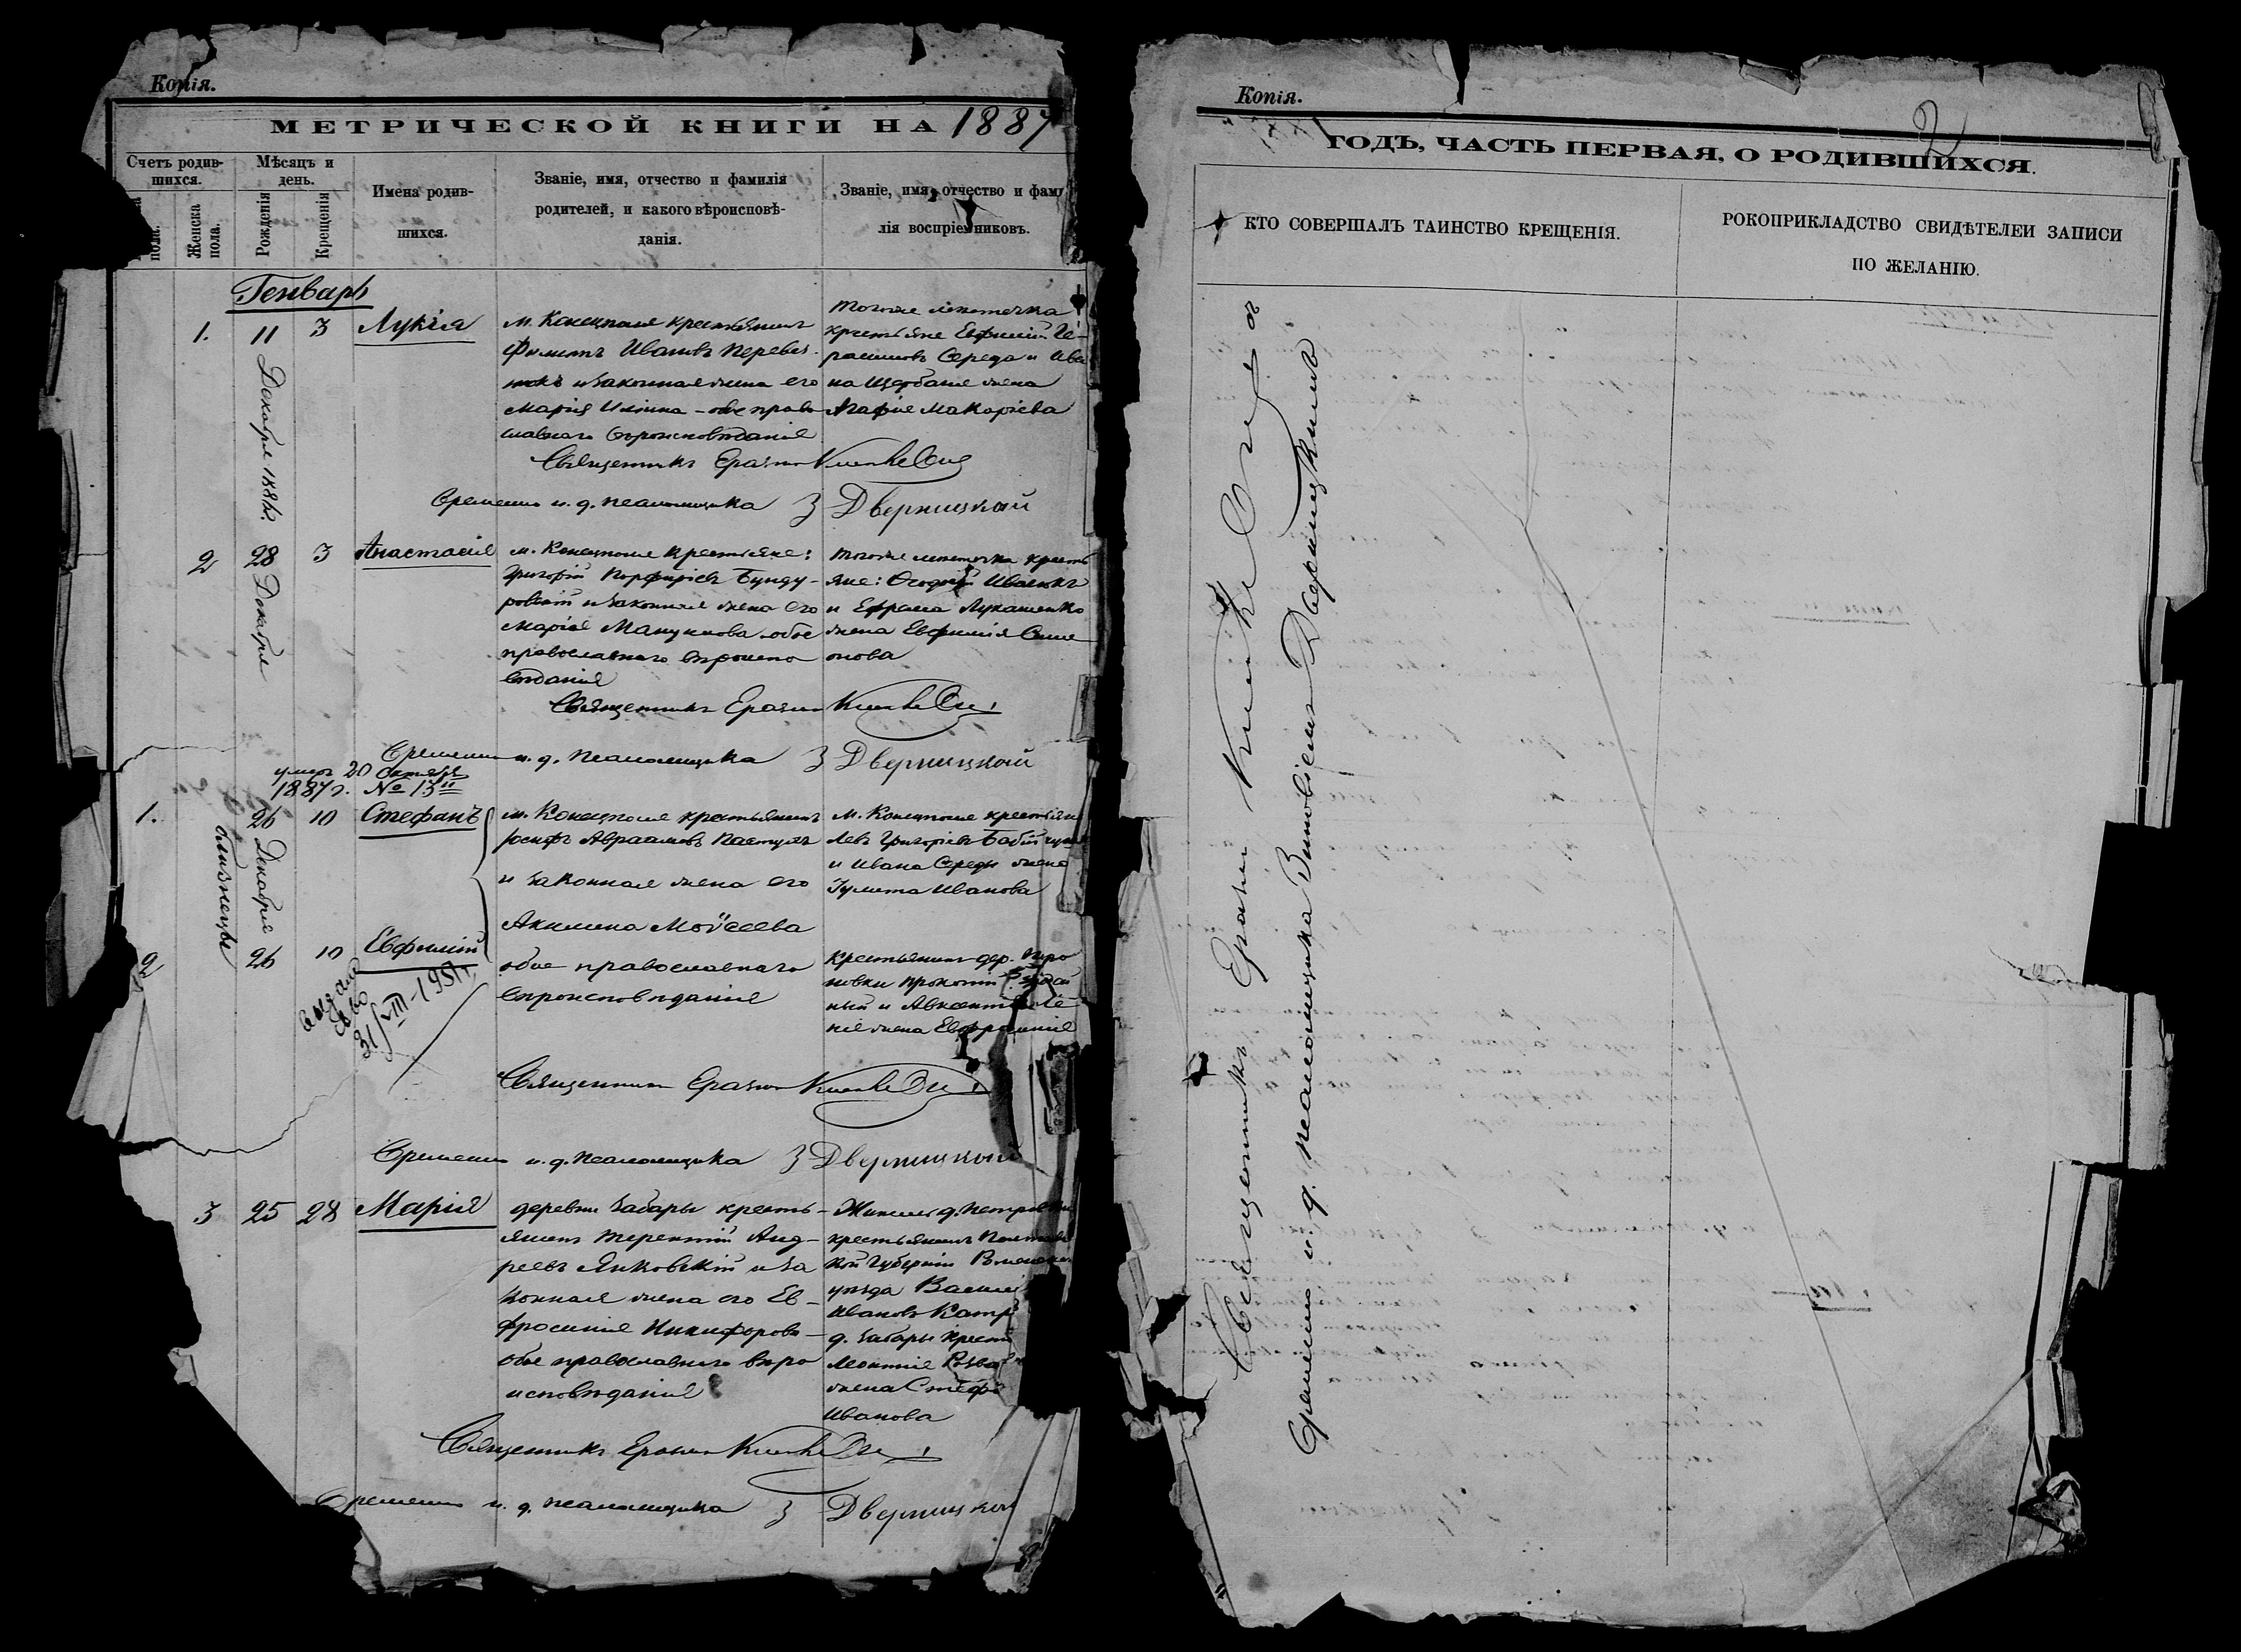 Копія.
МЕТРИЧЕСКОЙ КНИГИ НА 1887
Счетъ родив-
шихся.
Мѣсяцъ и
день.
Имена родив-
шихся.
Званіе, имя, отчество и фамилія
родителей, и какого вѣроисповѣ-
данія.
Званіе, имя, отчество и фами
лія воспріемниковъ.
пола.
Женска
пола.
Рожденія
Крещенія
Генварь
1. 11 3 Лукія
Декабря 1886 г.
м. Конецполя крестьянинъ
Филиппъ Ивановъ
и законная жена его
Марія Иліина – обое право
славнаго вѣроисповѣданія
тогоже мѣстечка
крестьяне Евфимій Ге-
расимовъ Середа и Ива
на Щербаня жена
Агафія Макаріева
Священникъ Еразмъ
Временно и. д. псаломщика З Дверницкий
2 28 3 Анастасія
Декабря
м. Конецполя крестьяне:
Григорій Порфиріевъ Бунду-
ровскій и законная жена его
Марія обое
православнаго вѣроиспо
вѣданія
тогоже мѣстечка кресть
яне: Иванюкъ
и Ефрема Лукашенко
жена Евфимія Симе
онова
Священникъ Еразмъ
Временно и. д. псаломщика З Дверницкий
умеръ 20 Октября
1887 г. № 13
1. 26 10 Стефанъ
близнецы
Декабря
м. Конецполя крестьянинъ
Іосифъ Авраамовъ Пастухъ
и законная жена его
Акилина Моѵсеева
обое православнаго
вѣроисповѣданія
м. Конецполя крестьяне
Левъ Григоріевъ
и Ивана Середы жена
Іулита Иванова
2 26 10 Евфимій
выдано
св-во
31/VIII-1951 г.
крестьянинъ дер.
новки Прокопій
ный и Авксентія
жена Евфросинія
Священникъ Еразмъ
Временно и. д. псаломщика З Дверницкий
3 25 28 Марія
деревни Забары кресть-
янинъ Терентій Анд-
реевъ Янковскій и за
конная жена его Ев-
фросинія Никифорова –
обое православнаго вѣро
исповѣданія
д. Петровки
крестьянинъ Полтавс
кой Губерніи Роменска
уѣзда Василій
Ивановъ
д. Забары крест
Леонтія
жена Стефа
Иванова
Священникъ Еразмъ
Временно и. д. псаломщика З Дверницкий
Копія.
2
ГОДЪ, ЧАСТЬ ПЕРВАЯ, О РОДИВШИХСЯ.
КТО СОВЕРШАЛЪ ТАИНСТВО КРЕЩЕНІЯ.
РОКОПРИКЛАДСТВО СВИДѢТЕЛЕИ ЗАПИСИ
ПО ЖЕЛАНІЮ.
Священникъ Еразмъ съ
Временно и. д. псаломщика Зиновіемъ Дверницкимъ